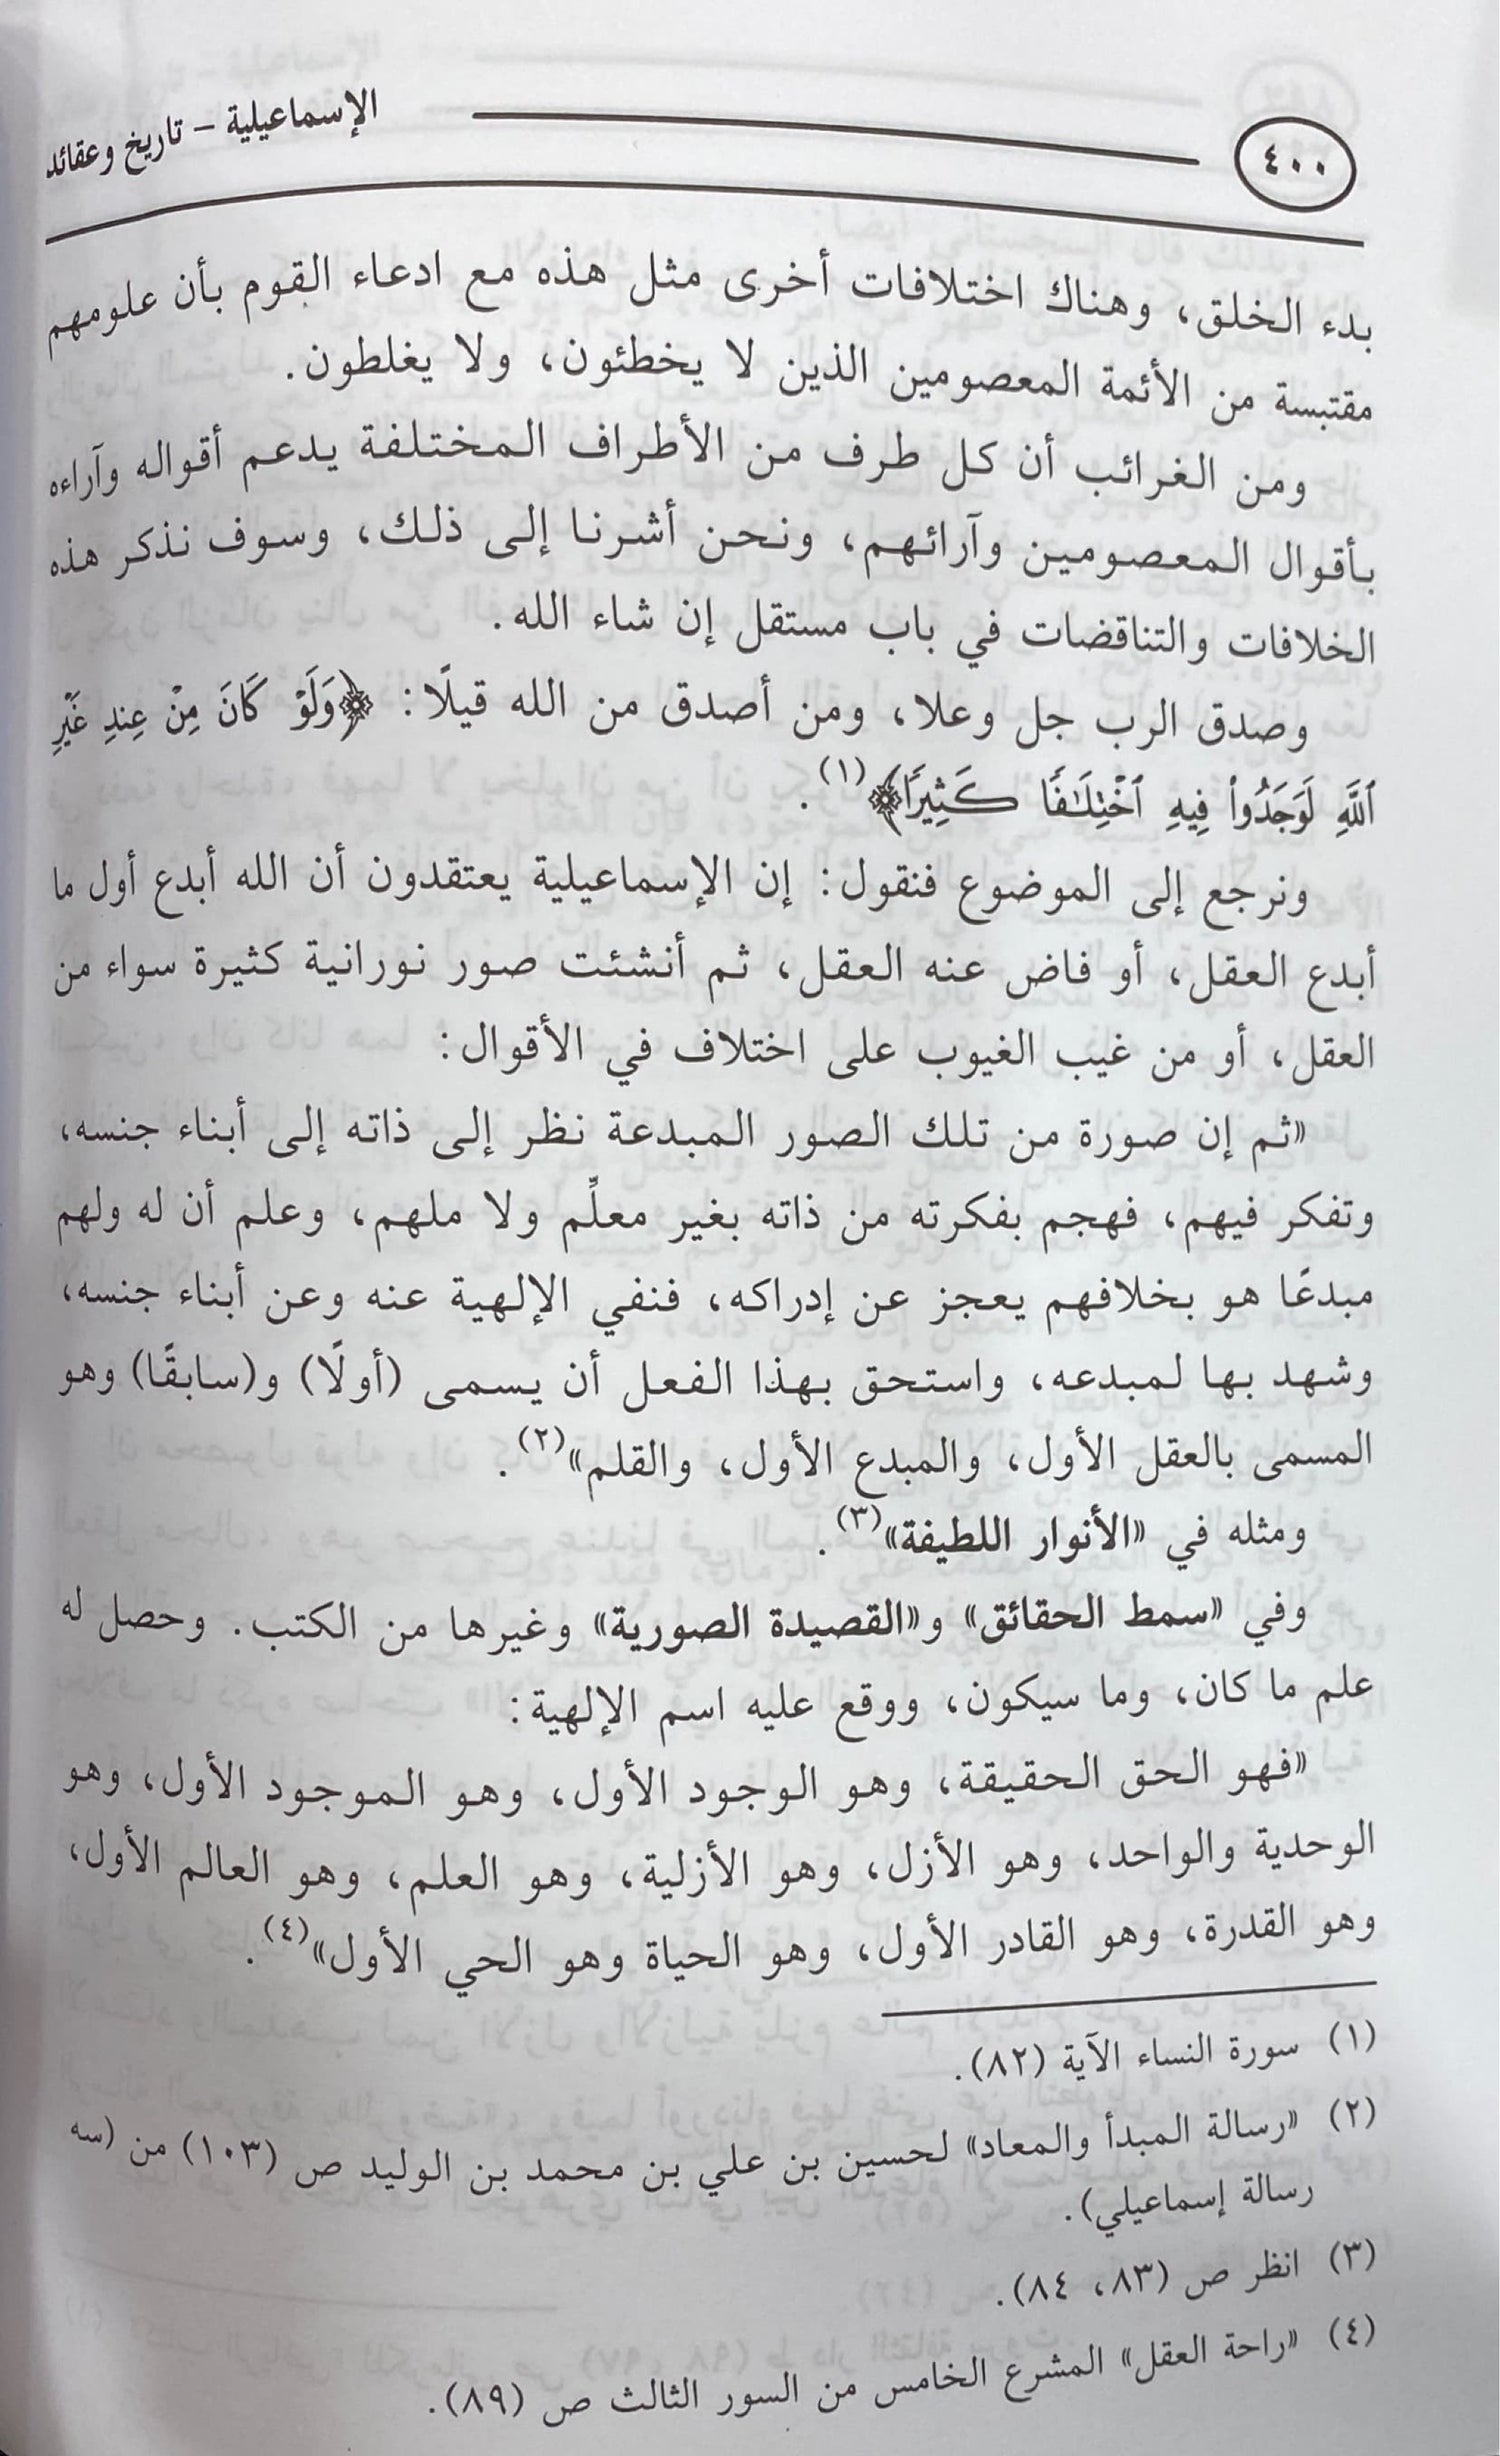 ٤٠٠
الإسماعيلية - تاريخ وعقائد
بدء الخلق، وهناك اختلافات أخرى مثل هذه مع ادعاء القوم بأن علومهم
مقتبسة من الأئمة المعصومين الذين لا يخطئون، ولا يغلطون.
ومن الغرائب أن كل طرف من الأطراف المختلفة يدعم أقواله وآراءه
بأقوال المعصومين وآرائهم، ونحن أشرنا إلى ذلك، وسوف نذكر هذه
الخلافات والتناقضات في باب مستقل إن شاء الله.
وصدق الرب جل وعلا، ومن أصدق من الله قيلًا: ﴿وَلَوْ كَانَ مِنْ عِندِ غَيْرِ
ٱللَّهِ لَوَجَدُوا۟ فِيهِ ٱخْتِلَـٰفًا كَثِيرًا﴾(١).
ونرجع إلى الموضوع فنقول: إن الإسماعيلية يعتقدون أن الله أبدع أول ما
أبدع العقل، أو فاض عنه العقل، ثم أنشئت صور نورانية كثيرة سواء من
العقل، أو من غيب الغيوب على اختلاف في الأقوال:
«ثم إن صورة من تلك الصور المبدعة نظر إلى ذاته إلى أبناء جنسه،
وتفكر فيهم، فهجم بفكرته من ذاته بغير معلِّم ولا ملهم، وعلم أن له ولهم
مبدعًا هو بخلافهم يعجز عن إدراكه، فنفي الإلهية عنه وعن أبناء جنسه،
وشهد بها لمبدعه، واستحق بهذا الفعل أن يسمى (أولًا) و(سابقًا) وهو
المسمى بالعقل الأول، والمبدع الأول، والقلم»(٢).
ومثله في «الأنوار اللطيفة»(٣).
وفي «سمط الحقائق» و«القصيدة الصورية» وغيرها من الكتب. وحصل له
علم ما كان، وما سيكون، ووقع عليه اسم الإلهية:
«فهو الحق الحقيقة، وهو الوجود الأول، وهو الموجود الأول، وهو
الوحدية والواحد، وهو الأزل، وهو الأزلية، وهو العلم، وهو العالم الأول،
وهو القدرة، وهو القادر الأول، وهو الحياة وهو الحي الأول»(٤).
(١) سورة النساء الآية (٨٢).
(٢) «رسالة المبدأ والمعاد» لحسين بن علي بن محمد بن الوليد ص (١٠٣) من (سه
رسالة إسماعيلي).
(٣) انظر ص (٨٣، ٨٤).
(٤) «راحة العقل» المشرع الخامس من السور الثالث ص (٨٩).